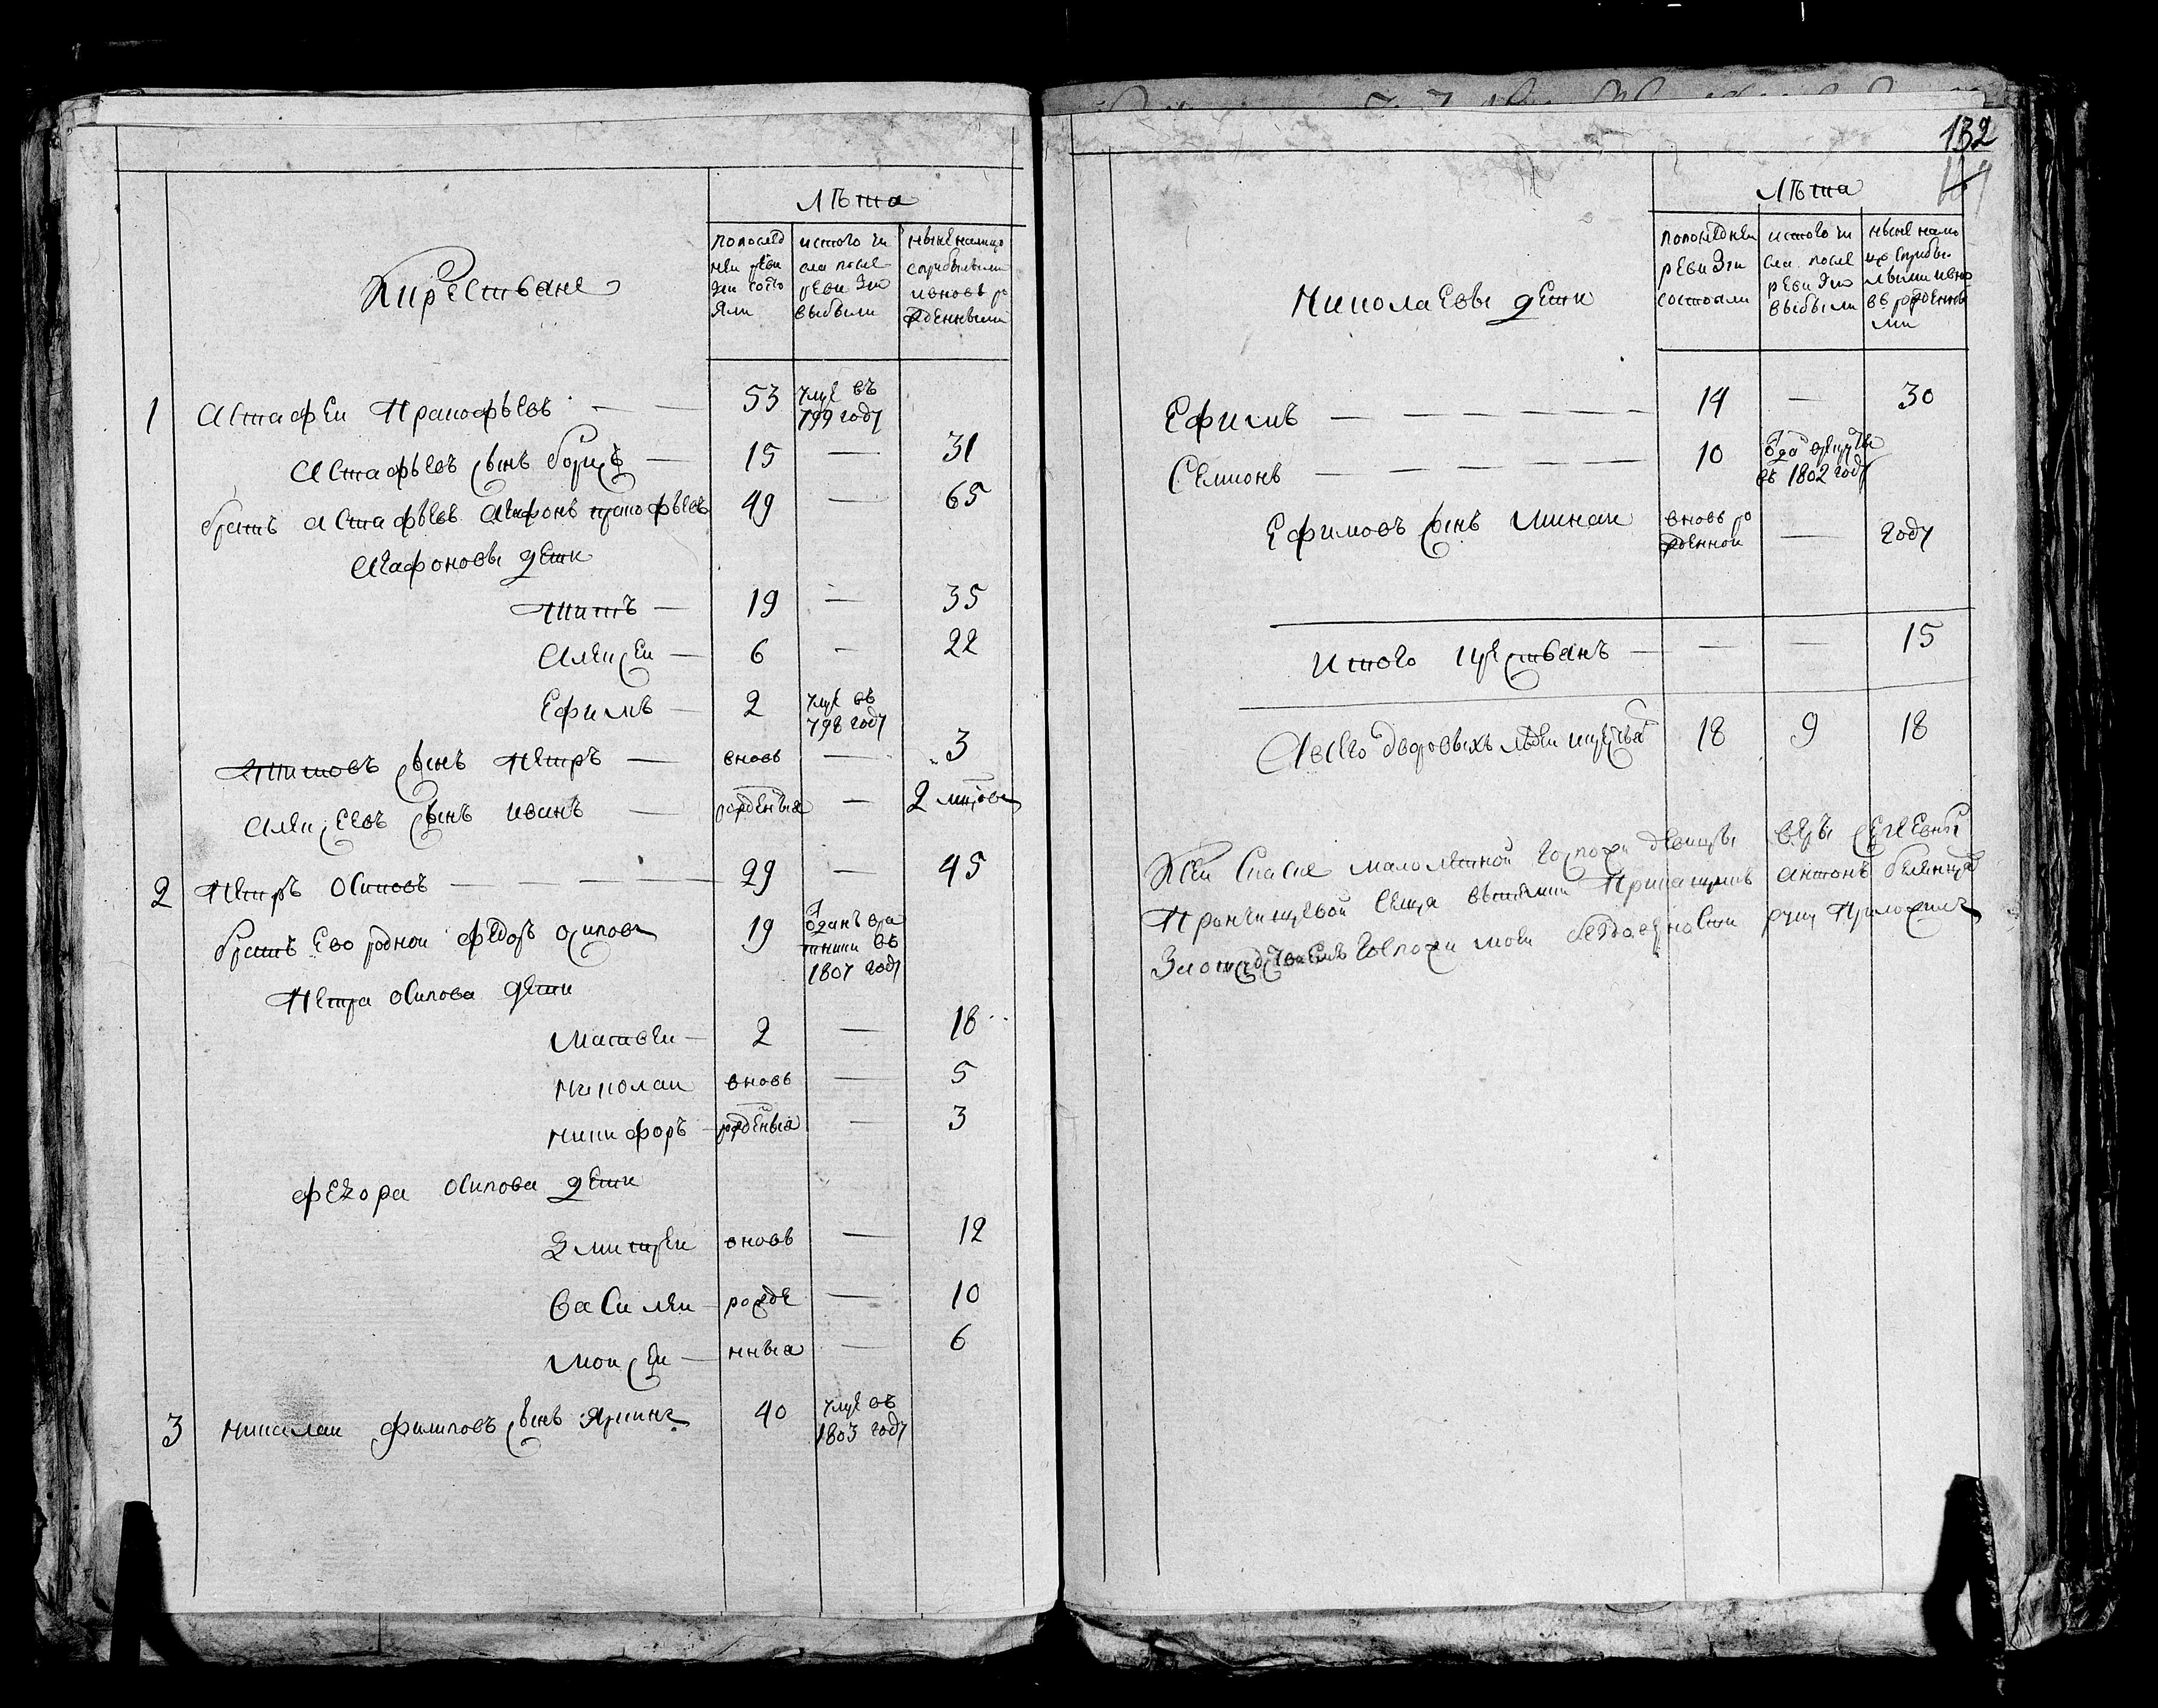 лѣта
Кирествяне
попослед
ней реви
зии состо
яли
ис того чи
сла после
ревизи
выбыли
ныне налицо
с прибылыми
и вновь ро
жденными
1 Астафеи Пракофьевъ — — 53 умре въ
799 году
Астафьевъ сынъ борисъ — 15 — 31
братъ Астафьевъ Агафонъ пракофьевъ 49 — 65
Агафоновы дети
Титъ — 19 — 35
Алексеи — 6 — 22
Ефимъ — 2 умре въ
798 году
Титовъ сынъ Петръ — вновь — 3
Алексеевъ сынъ иванъ — рожденыя — 2 месеовъ
2 Петръ Осиповъ — — — — 29 — 45
братъ ево роднои федоръ осиповъ 19 одданъ вра
тники въ
1807 году
Петра осипова дети
Матвеи — 2 — 18
Николаи вновь — 5
Никифоръ — рожденыя — 3
федора осипова дети
Дмитреи вновь — 12
Василеи — рожде — 10
Моисеи — нныя — 6
3 Николаи филиповъ сынъ Яркинъ 40 умре въ
1803 году
132
лѣта
Николаевы дети
попоследнеи
ревизии
состояли
ис того чи
сла после
ревизию
выбыли
ныне нали
цо с прибы
лыми и вно
въ рожденны
ми
Ефимъ — — — — — — 14 — 30
Семионъ — — — — — 10 одда врекруты
въ 1802 году
Ефимовъ сынъ Минаи вновь ро
жденнои — году
Итого крествянъ — — — 15
А всего дворовыхъ людеи икрества 18 9 18
Ксеи скаске малолетной госпожи девицы веры сергеевны
Прончищевой селца Прикащикъ антонъ
госпожи моеи руку Приложилъ